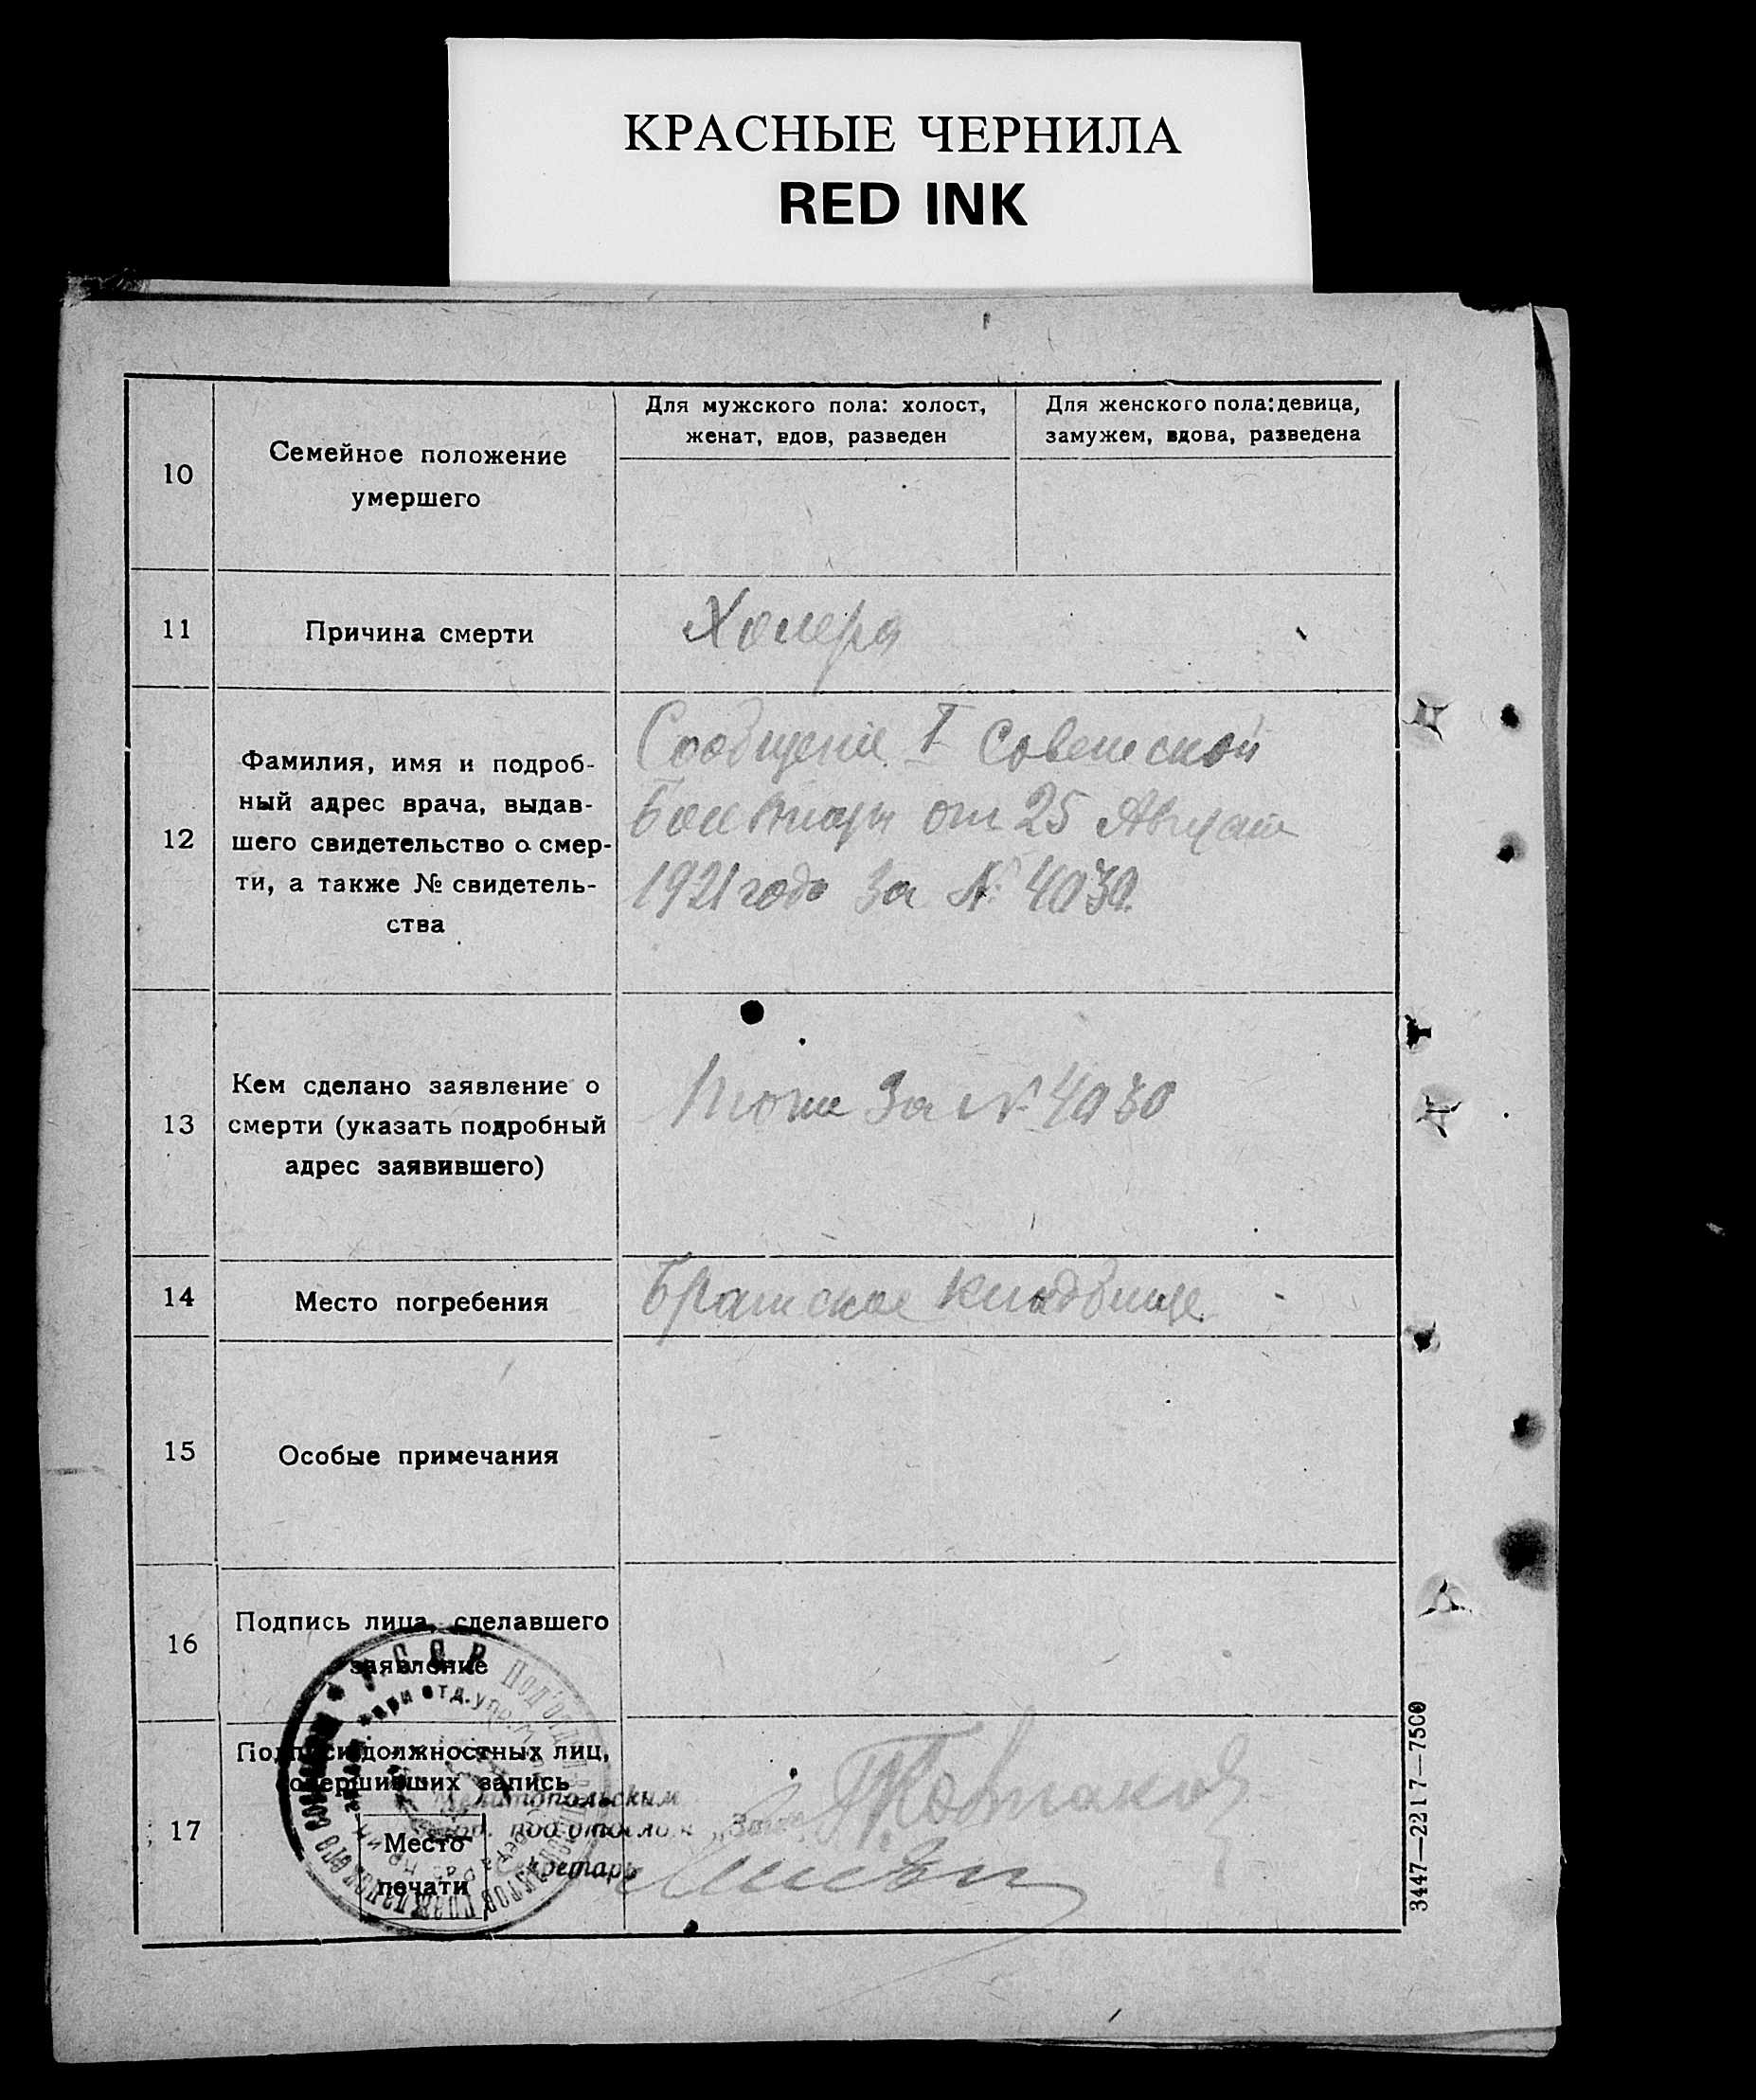 КРАСНЫЕ ЧЕРНИЛА
RED INK
10
Семейное положение
умершего
Для мужского пола: холост,
женат, вдов, разведен
Для женского пола: девица,
замужем, вдова, разведена
11
Причина смерти
Холера
12
Фамилия, имя и подроб-
ный адрес врача, выдав-
шего свидетельство о смер-
ти, а также № свидетель-
ства
Сообщение I Советской
от 25 Августа
1921 года за № 4030.
13
Кем сделано заявление о
смерти (указать подробный
адрес заявившего)
Тоже за № 4030
14
Место погребения
Братское кладбище
15
Особые примечания
16
Подпись лица, сделавшего
заявление
17
Подписи должностных лиц,
совершивших запись
Место
печати
Мелитопольским
подотделом „Загс
Секретарь
3447—2217—7500